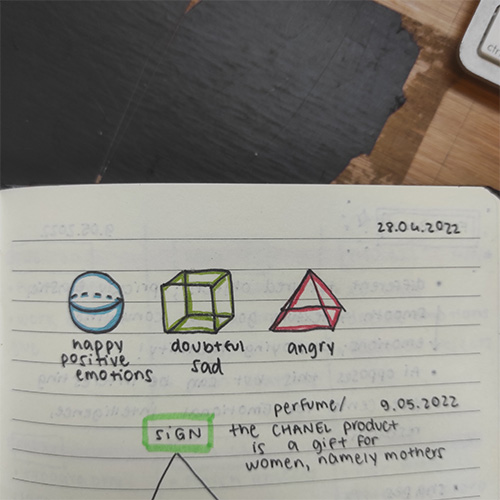 28.04.2022
happy
positive
emotions
doubtful
sad
angry
perfume/ 9.05.2022
SiGN
the CHANEL product
is a gift for
women, namely mothers